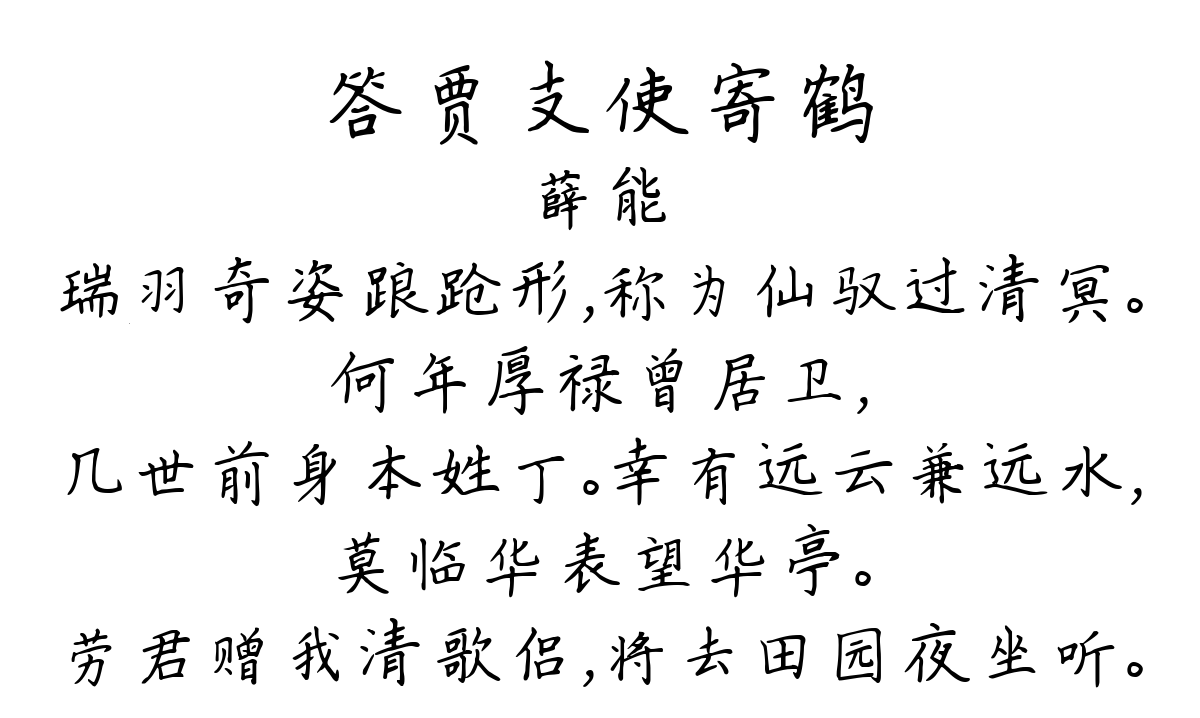 答贾支使寄鹤
薛能
瑞羽奇姿踉跄形,称为仙驭过清冥。
何年厚禄曾居卫,
几世前身本姓丁。幸有远云兼远水,
莫临华表望华亭。
劳君赠我清歌侣,将去田园夜坐听。